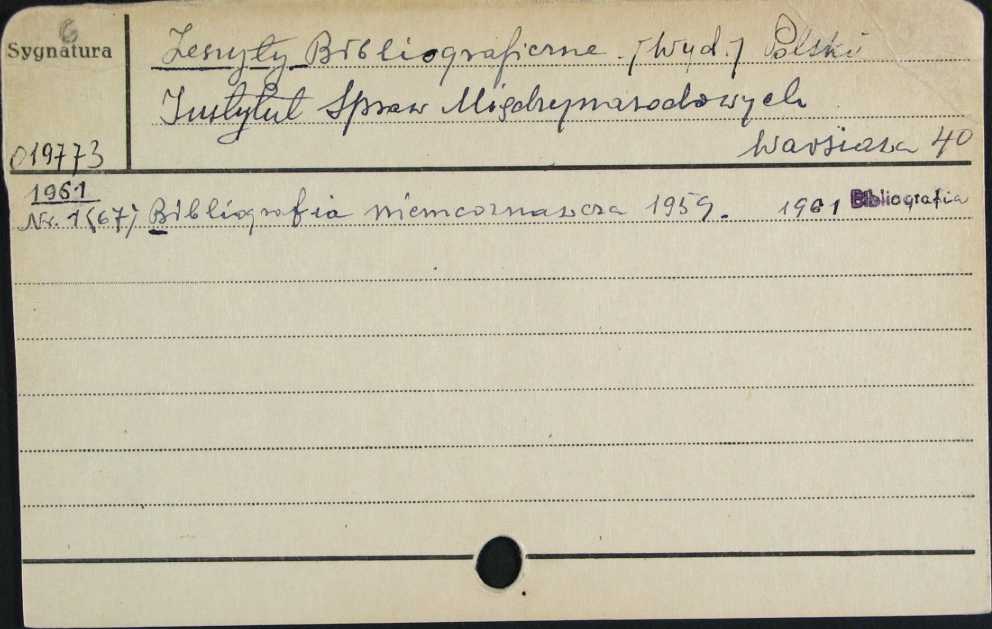 6
Sygnatura
Zeszyty Bibliograficzne. /Wyd./ Polski
Instytut Spraw Międzynarodowych
019773
Warszawa 40
1961
Nr. 1(67) Bibliografia niemcoznawcza 1959. 1961 Bibliografia